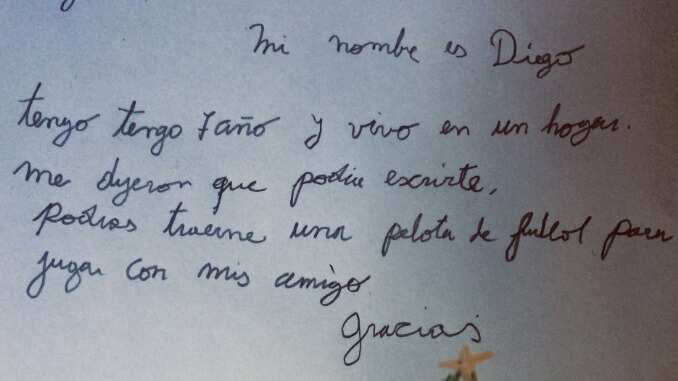 mi nombre es Diego
tengo tengo 7 año y vivo en un hogar.
me dijeron que podia escrirte,
Podrias traerme una pelota de futbol para
jugar con mis amigo
Gracias